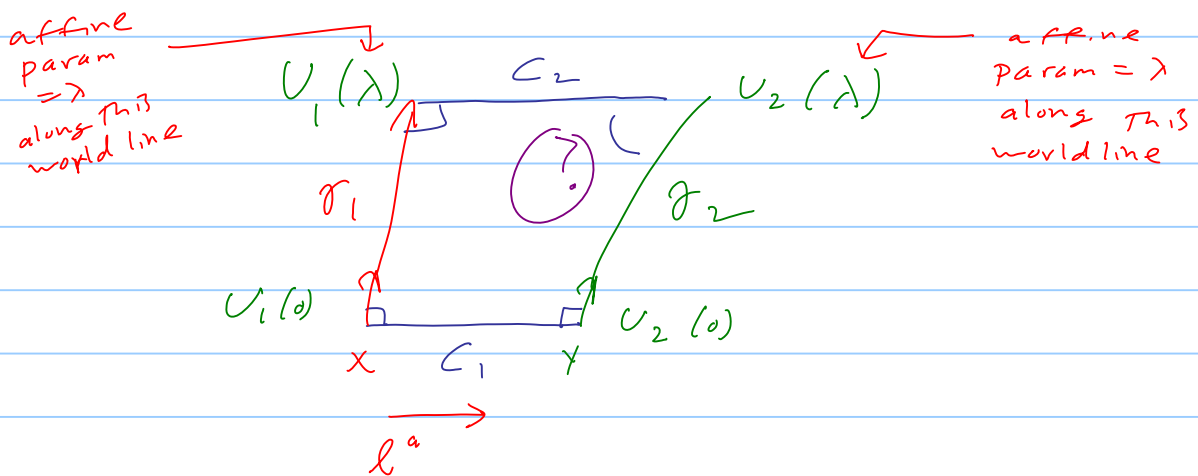 affine
param
= λ
along This
world line
U₁(λ)
C₂
U₂(λ)
affine
param = λ
along This
world line
γ₁
?
γ₂
U₁(0)
U₂(0)
X
C₁
Y
lᵃ